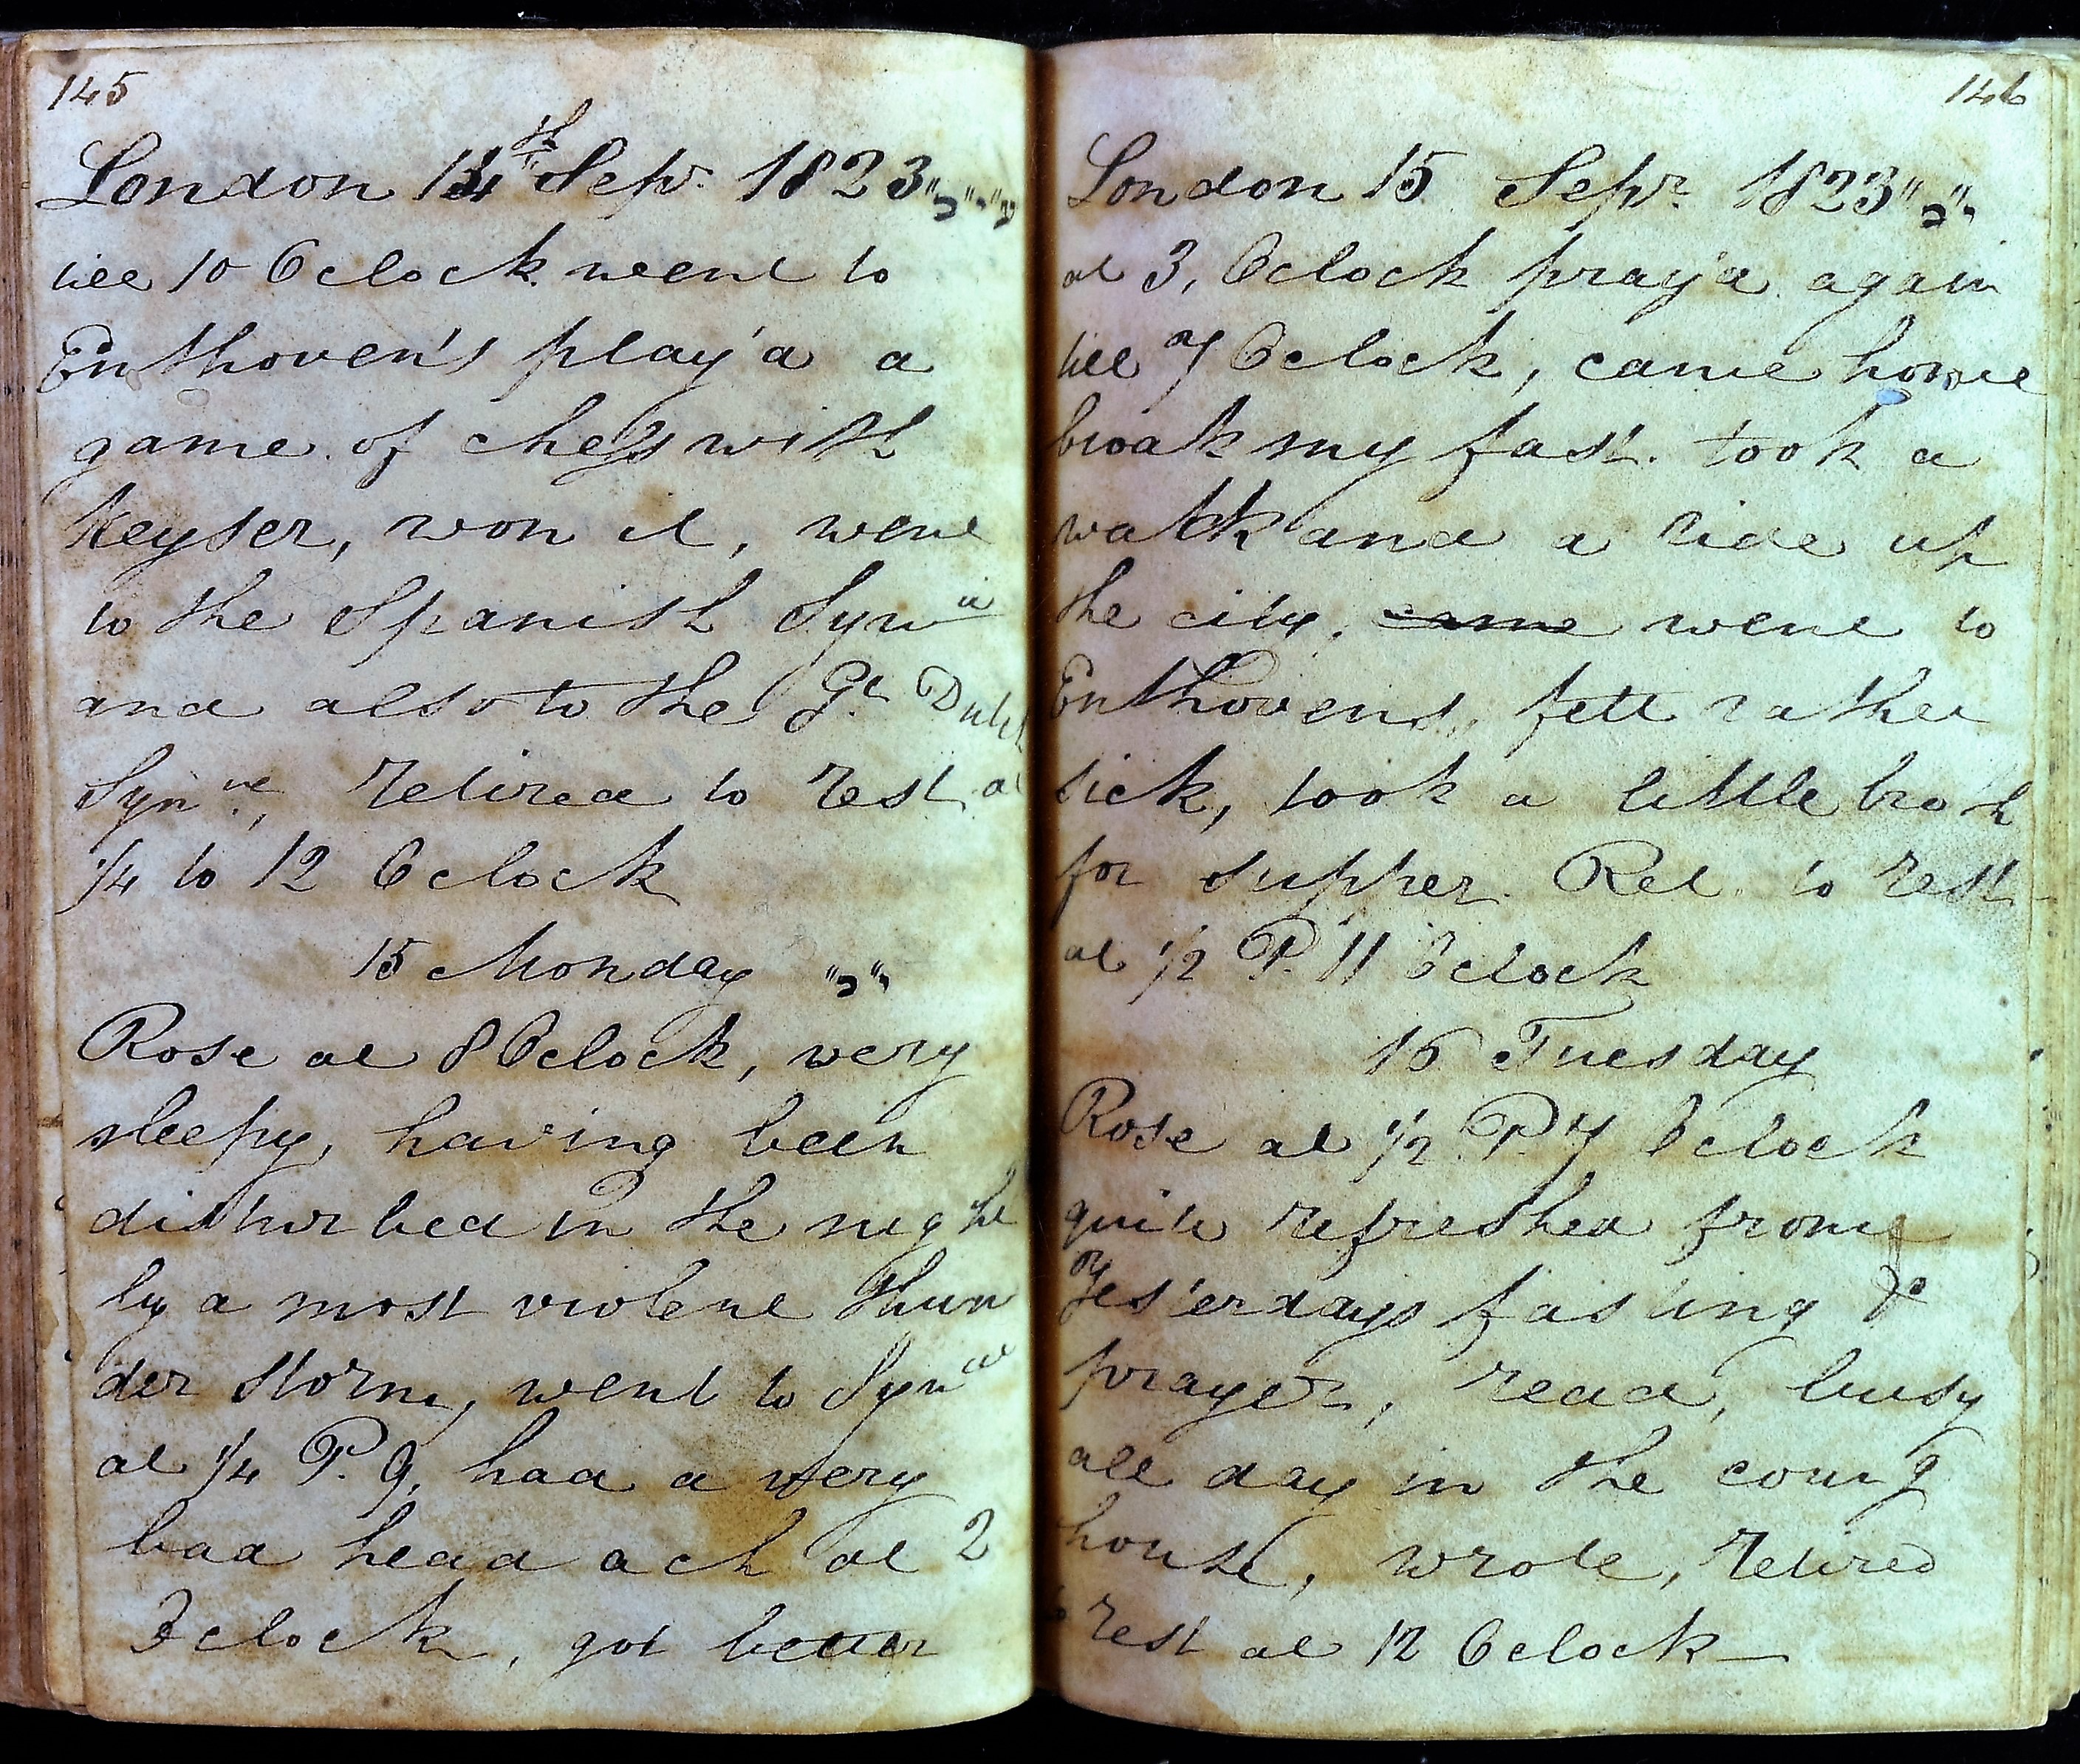 145
London 14th Sepr. 1823
till 10 Oclock went to
Enthoven's play'd a
game of chess with
Keyser, won it, went
to the Spanish Syn
and also to the Gt. Dutch
Syn, retired to rest at
1/4 to 12 Oclock
15 Monday
Rose at 8 Oclock, very
sleepy, having been
disturbed in the night
by a most violent thun
der storm, went to Syn
at 1/4 P. 9, had a very
bad head ach at 2
Oclock, got better
146
London 15 Sepr. 1823
at 3, Oclock pray'd again
till 7 Oclock, came home
broak my fast. took a
walk and a ride up
the city, came went to
Enthovens, felt rather
sick, took a little broth
for supper. Ret. to rest
at 1/2 P. 11 Oclock
16 Tuesday
Rose at 1/2 P. 7 Oclock
quite refreshed from
yesterdays fasting &
prayer, read, busy
all day in the countg
house, wrote, retired
to rest at 12 Oclock